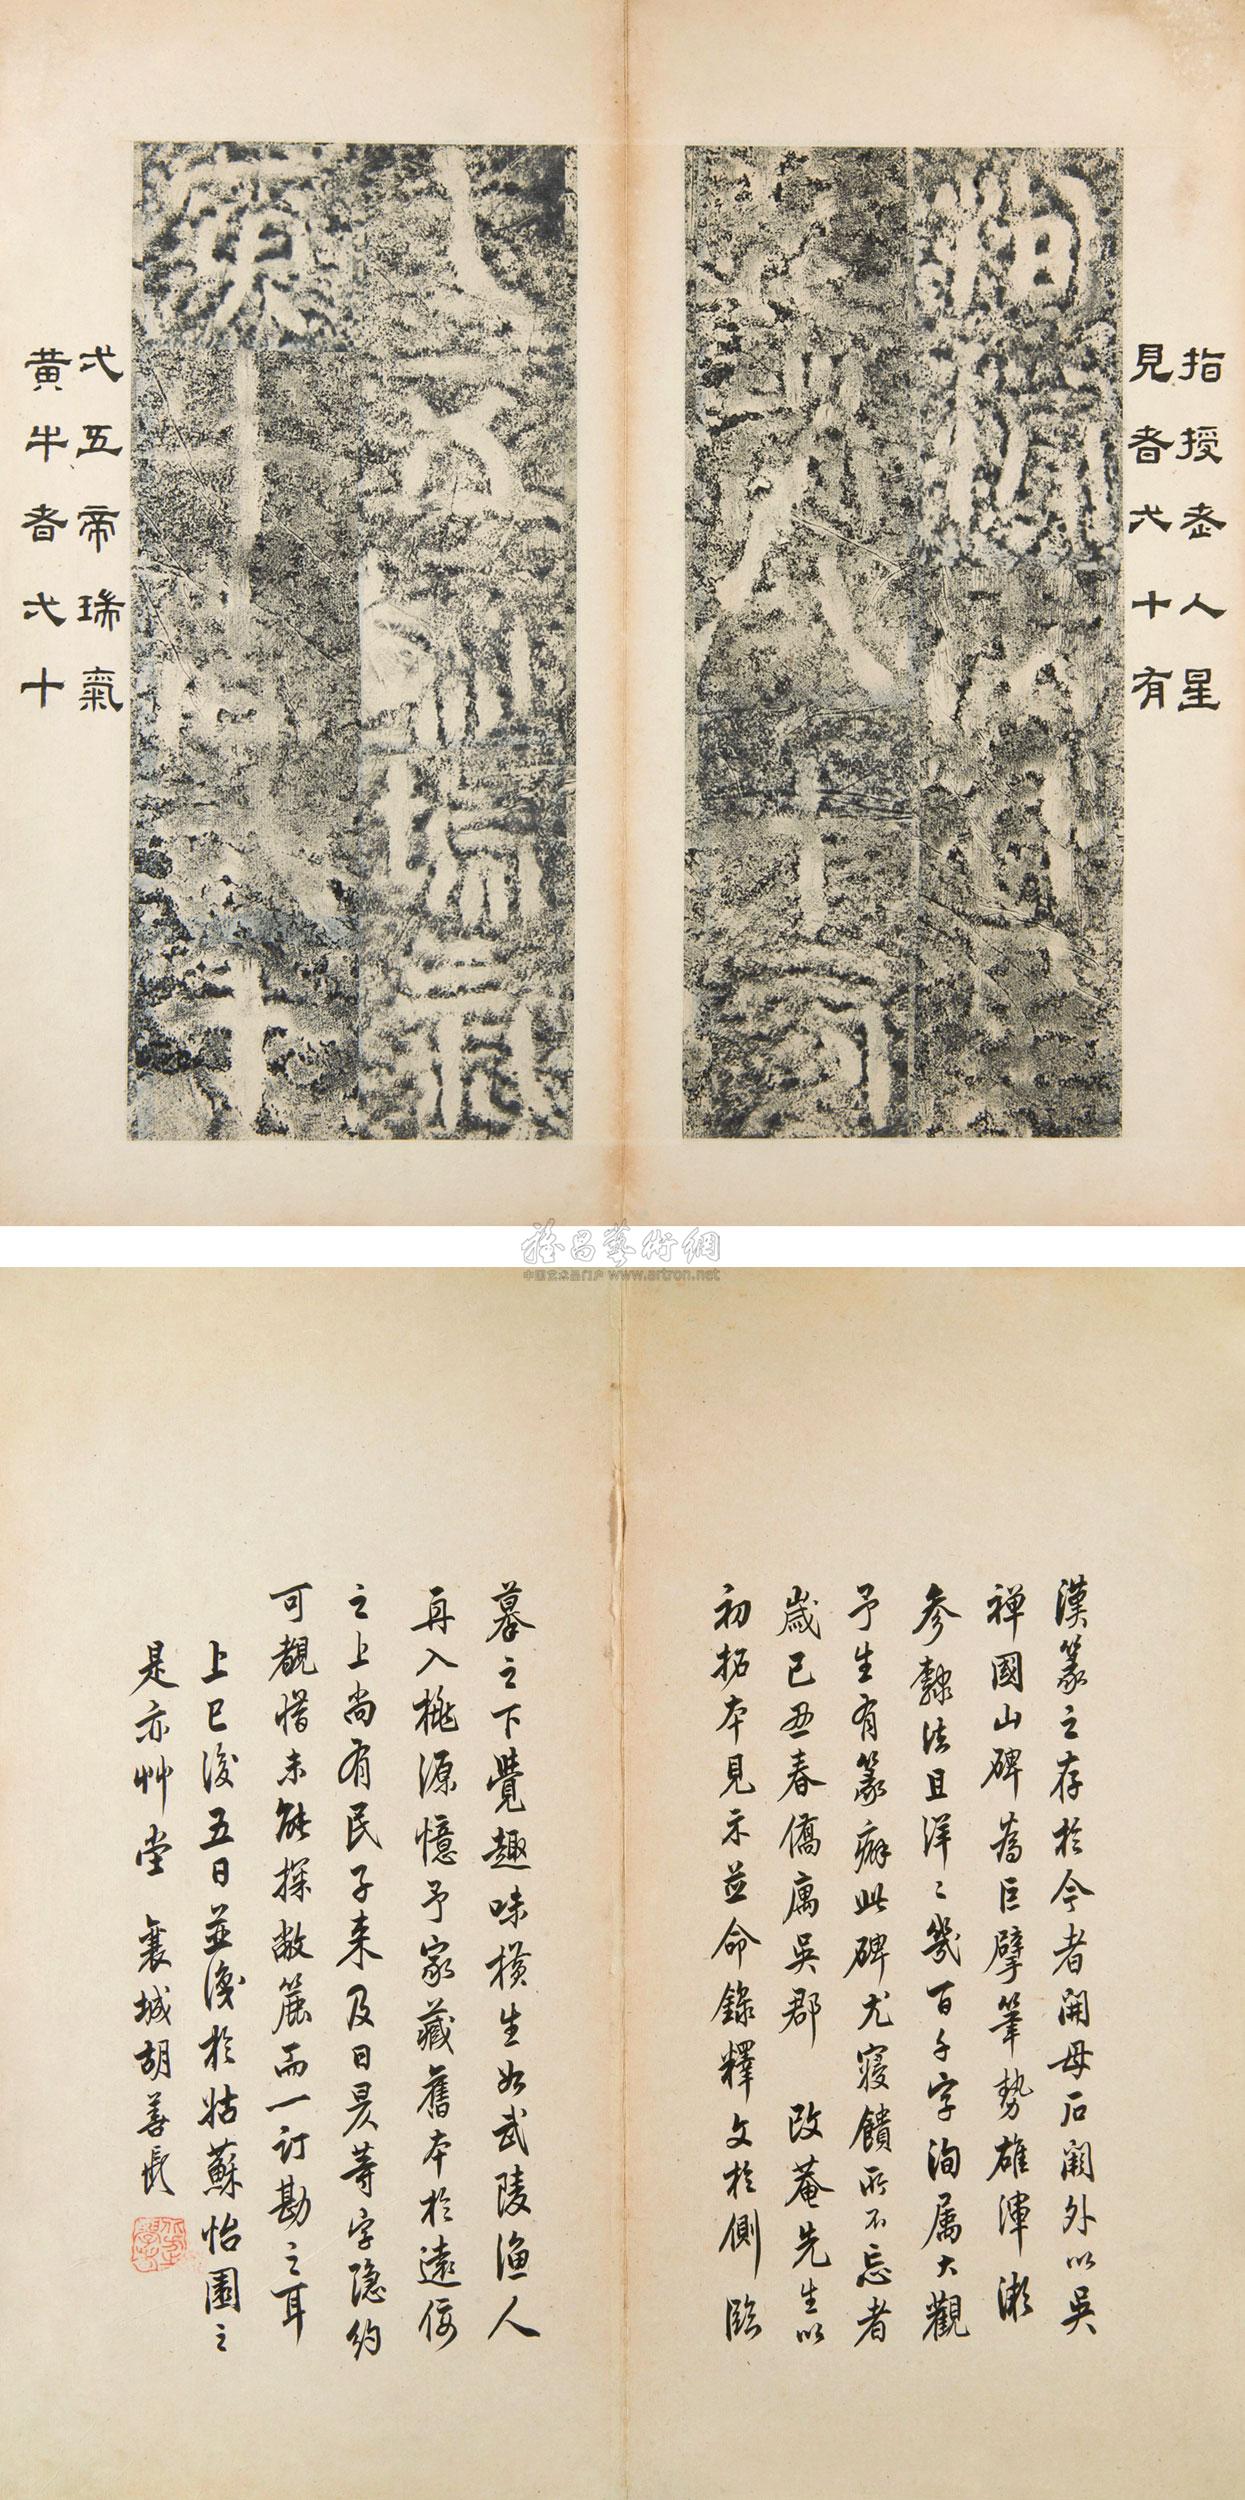 指授老人星
見者弌十有
弌五帝瑞氣
黄牛者弌十
雅昌藝術網
中国艺术品门户 www.artron.net
漢篆之存於今者開母石闕外以吳
禅國山碑為巨擘筆勢雄渾漸
參隸法且洋〻幾百千字洵属大觀
予生有篆癖此碑尤寢饋所不忘者
嵗己丑春僑寓吳郡 改菴先生以
初拓本見示並命錄釋文於側臨
摹之下覺趣味横生如武陵漁人
再入桃源憶予家藏舊本於遠俀
之上尚有民子来及日昃等字隱約
可覩惜未能探敝簏而一訂勘之耳
上巳後五日並識於姑蘇怡園之
是亦艸堂 襄城胡善長